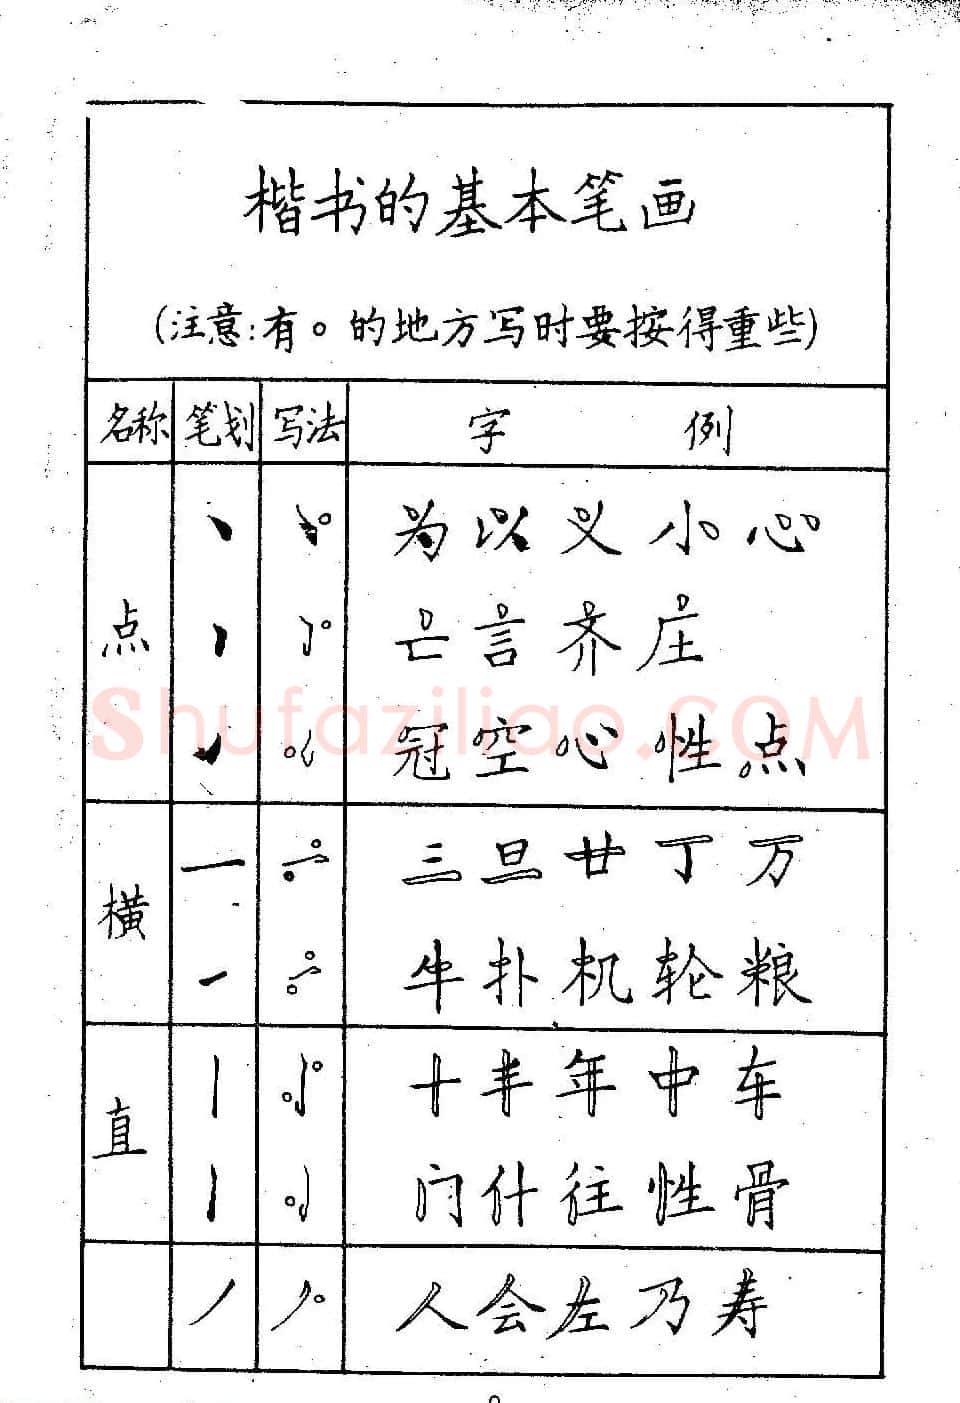 楷书的基本笔画
(注意:有。的地方写时要按得重些)
名称 笔划 写法 字 例
为 以 义 小 心
点 亡 言 齐 庄
冠 空 心 性 点
三 旦 廿 丁 万
横
牛 扑 机 轮 粮
十 丰 年 中 车
直
门 什 往 性 骨
人 会 左 乃 寿
Shufaziliao.COM